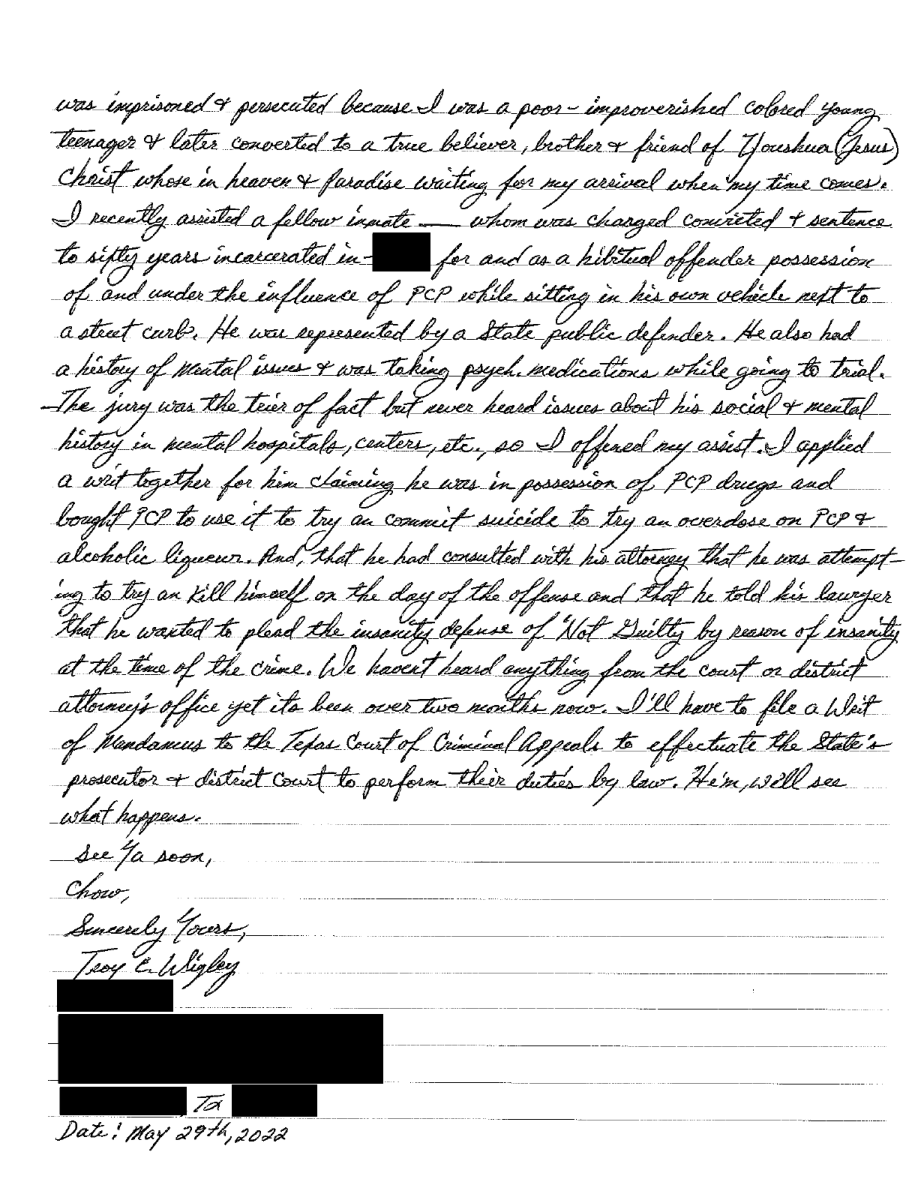 was imprisoned & persecuted because I was a poor- improverished colored young
teenager & later converted to a true believer, brother & friend of Youshua (Jesus)
Christ whose in heaven & Paradise waiting for my arrival when my time comes.
I recently assisted a fellow inmate — whom was charged convicted & sentence
to sixty years incarcerated in- for and as a hibitual offender possession
of and under the influence of PCP while sitting in his own vehicle next to
a street curb. He was represented by a State public defender. He also had
a history of mental issues & was taking psych. medications while going to trial.
The jury was the trier of fact but never heard issues about his social & mental
history in mental hospitals, centers, etc., so I offered my assist. I applied
a writ together for him claiming he was in possession of PCP drugs and
bought PCP to use it to try an commit suicide to try an overdose on PCP &
alcoholic liqueur. And, that he had consulted with his attorney that he was attempt-
ing to try an kill himself on the day of the offense and that he told his lawyer
that he wanted to plead the insanity defense of "Not Guilty by reason of insanity
at the time of the crime. We haven't heard anything from the court or district
attorney's office yet its been over two months now. I'll have to file a Writ
of Mandamus to the Texas Court of Criminal Appeals to effectuate the State's
prosecutor & district court to perform their duties by law. He'm, we'll see
what happens.
See Ya soon,
Chow,
Sincerely Yours,
Troy C. Wigley
, Tx
Date: May 29th, 2022